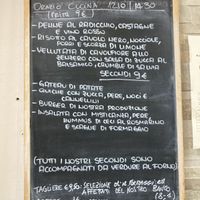 ORARIO CUCINA 12.10 / 14.30
(PRIMI 9€)
- PENNE AL RADICCHIO, CASTAGNE
E VINO ROSSO
- RISOTTO AL CAVOLO NERO, NOCCIOLE,
PORRI E SCORZA DI LIMONE
- VELLUTATA DI CAVOLFIORE ALLO
ZENZERO CON SALSA DI ZUCCA AL
BALSAMICO, CRUMBLE DI SALVIA
SECONDI 9€
- GATEAU DI PATATE
- QUICHE CON ZUCCA, PERE, NOCI E
CANNELLINI
- BURGER DI NOSTRA PRODUZIONE
- INSALATA CON MISTICANZA, PERE,
HUMMUS DI CECI AL ROSMARINO
E SCAGLIE DI FORMAGGIO
(TUTTI I NOSTRI SECONDI SONO
ACCOMPAGNATI DA VERDURE AL FORNO)
TAGLIERE SELEZIONE di FORMAGGI ed
AFFETTATI DEL NOSTRO BANCO